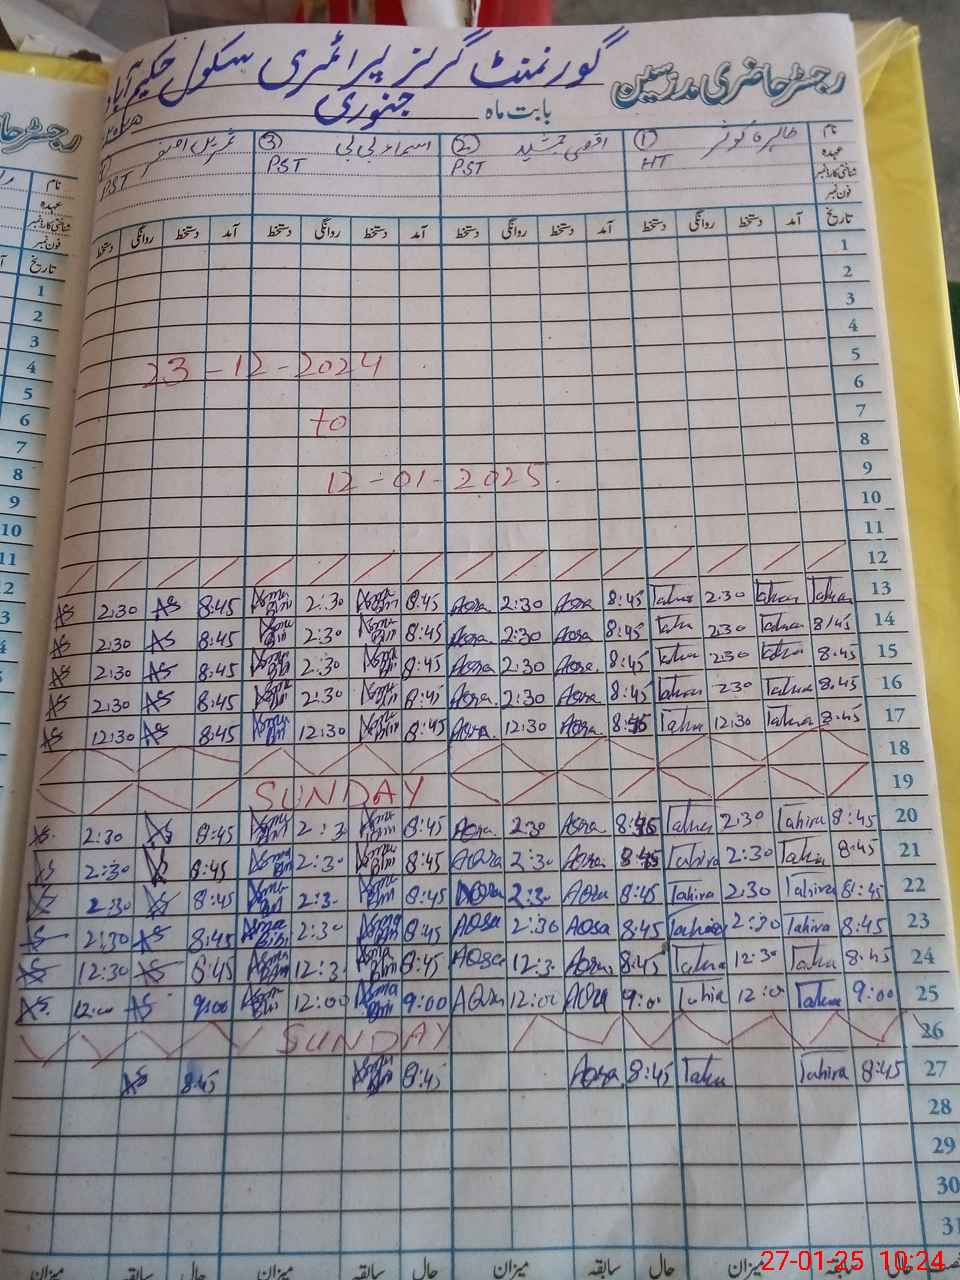 رجسٹر حاضری مدرسین گورنمنٹ گرلز پرائمری سکول حکیم آباد
بابت ماہ جنوری
نام طاہرہ کوثر ① اقصیٰ جمشید ② اسماء بی بی ③
عہدہ HT PST PST PST
شناختی کارڈ نمبر
فون نمبر
تاریخ آمد دستخط روانگی دستخط آمد دستخط روانگی دستخط آمد دستخط روانگی دستخط آمد دستخط روانگی دستخط
1
2
3
4
5
23-12-2024
6
7
to
8
9
12-01-2025
10
11
12
AS 2:30 AS 8:45 Asma Bibi 2:30 Asma Bibi 8:45 Aqsa 2:30 Aqsa 8:45 Tahira 2:30 Tahira Tahira 13
AS 2:30 AS 8:45 Asma Bibi 2:30 Asma Bibi 8:45 Aqsa 2:30 Aqsa 8:45 Tahira 2:30 Tahira 8:45 14
AS 2:30 AS 8:45 Asma Bibi 2:30 Asma Bibi 8:45 Aqsa 2:30 Aqsa 8:45 Tahira 2:30 Tahira 8:45 15
AS 2:30 AS 8:45 Asma Bibi 2:30 Asma Bibi 8:45 Aqsa 2:30 Aqsa 8:45 Tahira 2:30 Tahira 8:45 16
AS 12:30 AS 8:45 Asma Bibi 12:30 Asma Bibi 8:45 Aqsa 12:30 Aqsa 8:45 Tahira 12:30 Tahira 8:45 17
18
SUNDAY 19
AS 2:30 AS 8:45 Asma Bibi 2:3 Asma Bibi 8:45 Aqsa 2:30 Aqsa 8:45 Tahira 2:30 Tahira 8:45 20
AS 2:30 AS 8:45 Asma Bibi 2:30 Asma Bibi 8:45 Aqsa 2:30 Aqsa 8:45 Tahira 2:30 Tahira 8:45 21
AS 2:30 AS 8:45 Asma Bibi 2:3 Asma Bibi 8:45 Aqsa 2:30 Aqsa 8:45 Tahira 2:30 Tahira 8:45 22
AS 2:30 AS 8:45 Asma Bibi 2:30 Asma Bibi 8:45 Aqsa 2:30 Aqsa 8:45 Tahira 2:30 Tahira 8:45 23
AS 12:30 AS 8:45 Asma Bibi 12:3 Asma Bibi 8:45 Aqsa 12:3 Aqsa 8:45 Tahira 12:30 Tahira 8:45 24
AS 12:00 AS 9:00 Asma Bibi 12:00 Asma Bibi 9:00 Aqsa 12:00 Aqsa 9:00 Tahira 12:00 Tahira 9:00 25
SUNDAY 26
AS 8:45 Asma Bibi 8:45 Aqsa 8:45 Tahira Tahira 8:45 27
28
29
30
31
سابقہ میزان حال سابقہ میزان حال سابقہ میزان حال سابقہ میزان
27-01-25 10:24